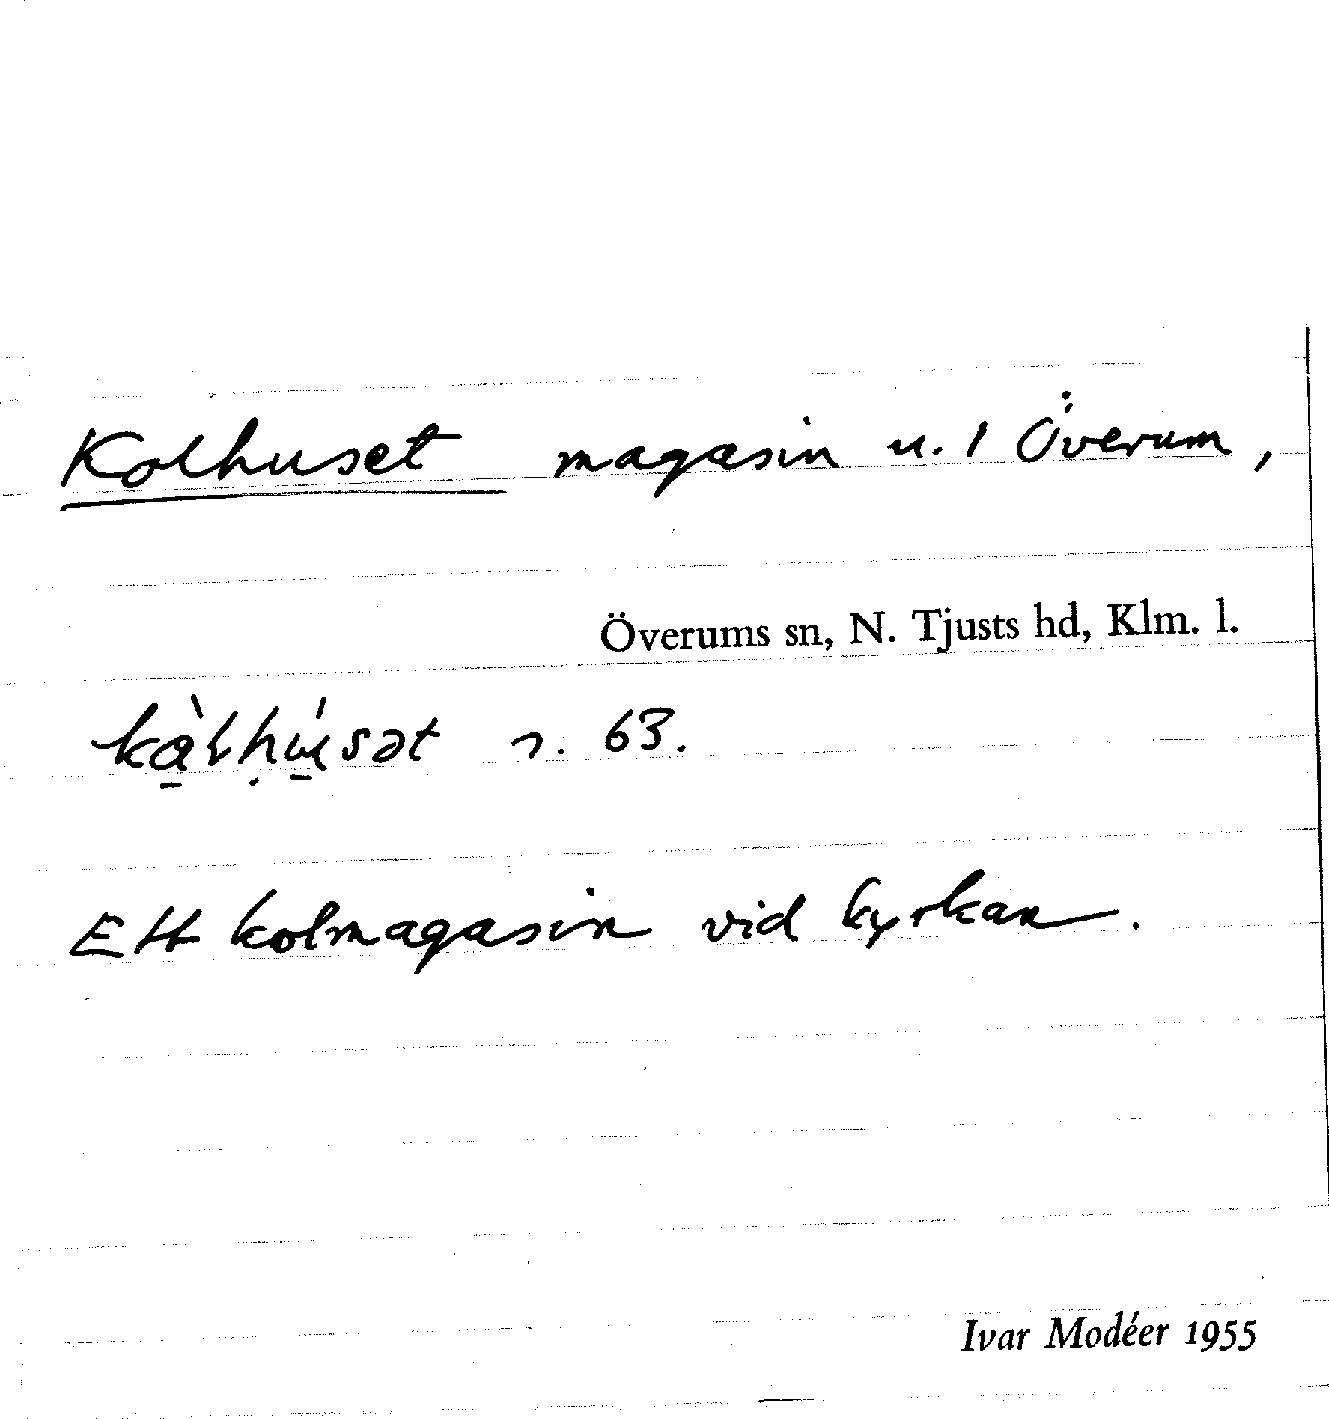 Kolhuset magasin u. 1 Överum,
Överums sn, N. Tjusts hd, Klm. l.
n. 63.
Ett kolmagasin vid kyrkan.
Ivar Modéer 1955